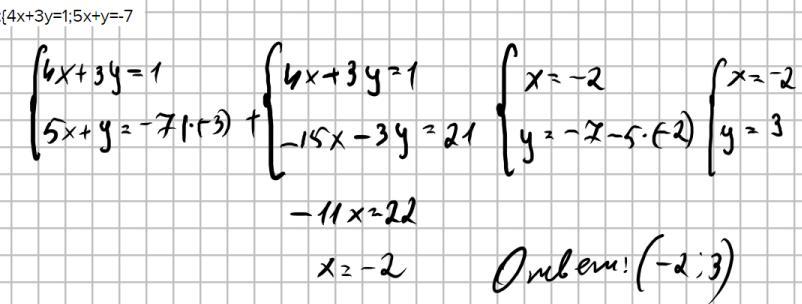 {4x+3y=1;5x+y=-7
{4x+3y=1
5x+y=-7 |·(-3)
+ {4x+3y=1
-15x-3y=21
-11x=22
x=-2
{x=-2
y=-7-5·(-2)
{x=-2
y=3
Ответ: (-2;3)